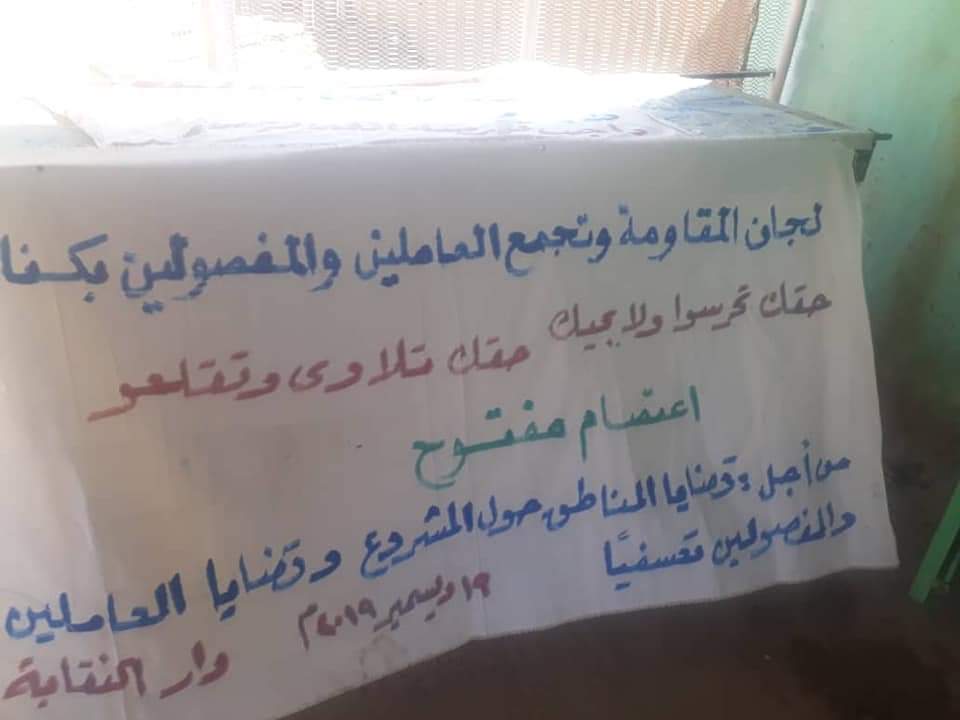 لجان المقاومة وتجمع العاملين والمفصولين بكنا
حقك تحرسوا ولا بجيك حقك تلاوى وتقلعو
اعتصام مفتوح
من أجل : قضايا المناطق حول المشروع وقضايا العاملين
والمفصولين تعسفيًا
١٩ ديسمبر ٢٠١٩م
دار النقابة